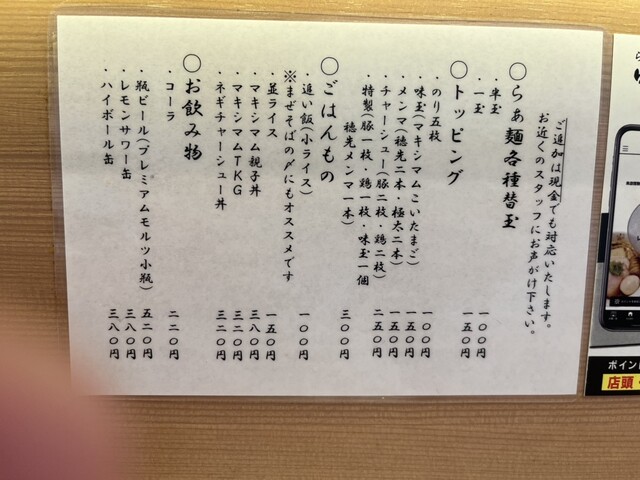 ご追加は現金でも対応いたします。
お近くのスタッフにお声がけ下さい。
○らぁ麺各種替玉
・半玉 一〇〇円
・一玉 一五〇円
○トッピング
・のり五枚 一〇〇円
・味玉(マキシマムこいたまご) 一五〇円
・メンマ(穂先二本・極太二本) 一五〇円
・チャーシュー(豚二枚・鶏二枚) 二五〇円
・特製(豚一枚・鶏一枚・味玉一個
穂先メンマ一本) 三〇〇円
○ごはんもの
・追い飯(小ライス) 一〇〇円
※まぜそばの〆にもオススメです
・並ライス 一五〇円
・マキシマム親子丼 三八〇円
・マキシマムTKG 三二〇円
・ネギチャーシュー丼 三二〇円
○お飲み物
・コーラ 二二〇円
・瓶ビール(プレミアムモルツ小瓶) 五二〇円
・レモンサワー缶 三八〇円
・ハイボール缶 三八〇円
ポイン
店頭